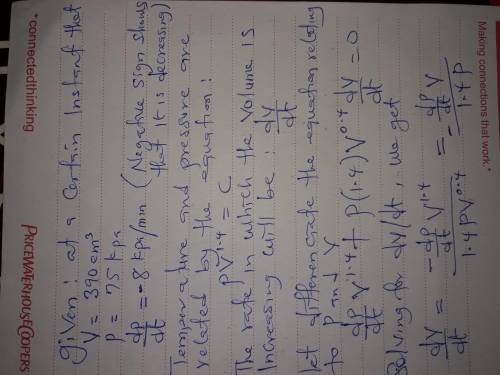 Making connections that work.*
*connectedthinking
PRICEWATERHOUSECOOPERS
given: at a certain instant that
V = 390 cm³
P = 75 kpa
dP/dt = -8 kpa/min (Negative sign shows that it is decreasing)
Temperature and pressure are
related by the equation:
PV^1.4 = C
The rate in which the volume is
Increasing will be: dV/dt
let differenciate the equation relating
to P and V
dP/dt V^1.4 + P(1.4)V^0.4 dV/dt = 0
Solving for dV/dt, we get
dV/dt = -dP/dt V^1.4 / 1.4 PV^0.4 = -dP/dt V / 1.4 P